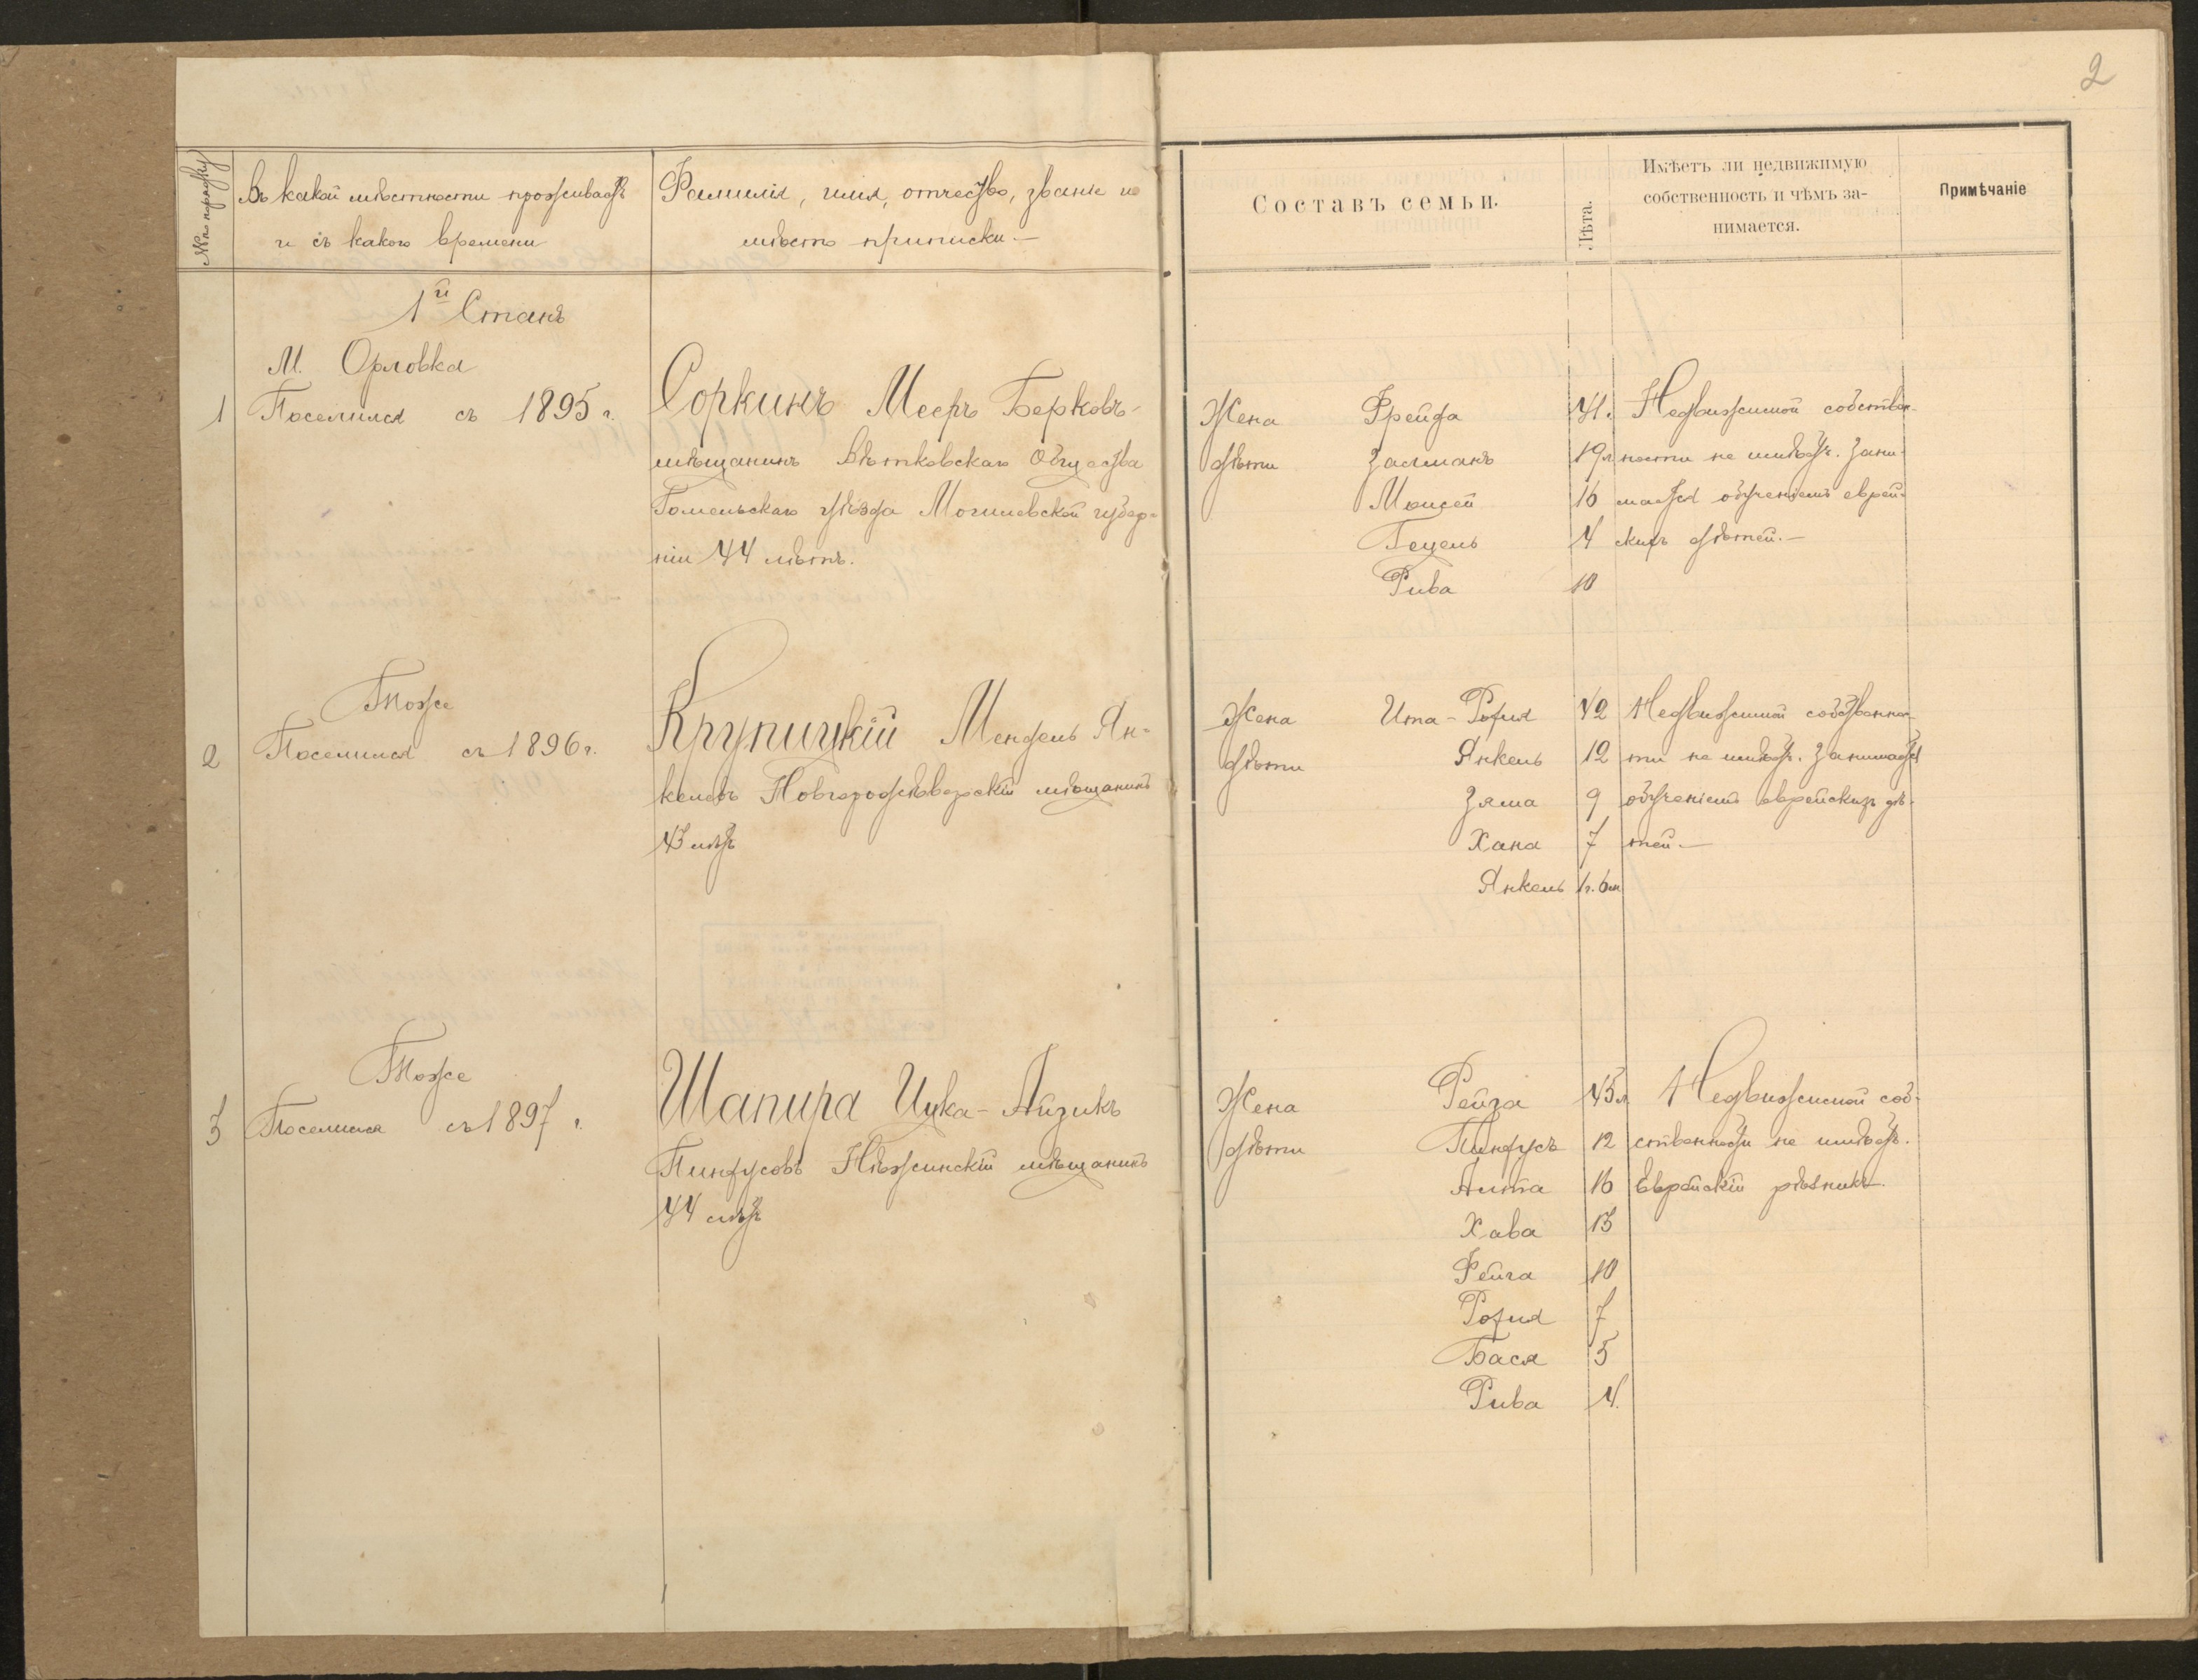 2
№ по порядку
Въ какой мѣстности проживаетъ
и съ какого времени
Фамилія, имя, отчество, званіе и
мѣсто приписки.—
Составъ семьи.
Лѣта.
Имѣетъ ли недвижимую
собственность и чѣмъ за-
нимается.
Примѣчаніе
1й Станъ
М. Орловка
1 Поселился съ 1895 г.
Соркинъ Мееръ Берковъ-
мѣщанинъ Вѣтковскаго Общества
Гомельскаго уѣзда Могилевской губер-
ніи 44 лѣтъ.
Жена Фрейда 41. Недвижимой собствен-
дѣти Залманъ 19 л. ности не имѣетъ. Зани-
Моисей 16 мается обученіемъ еврей-
Гецель 4 скихъ дѣтей.—
Рива 10
Тоже
2 Поселился съ 1896 г.
Крупицкій Мендель Ян-
келевъ Новгородсѣверскій мѣщанинъ
43 лѣтъ
Жена Ита-Рохля 42 Недвижимой собственнос-
дѣти Янкель 12 ти не имѣетъ. Занимается
Зяма 9 обученіемъ еврейскихъ дѣ-
Хана 7 тей.—
Янкель 1 г. 6 м
Тоже
3 Поселился съ 1897 г.
Шапира Ицка-Айзикъ
Пинхусовъ Нѣжинскій мѣщанинъ
44 лѣтъ
Жена Рейза 43 л. Недвижимой соб-
дѣти Пинхусъ 12 ственности не имѣетъ.
16 Еврейскій рѣзникъ.
Хава 13
Фейга 10
Рохля 7
Бася 5
Рива 4.